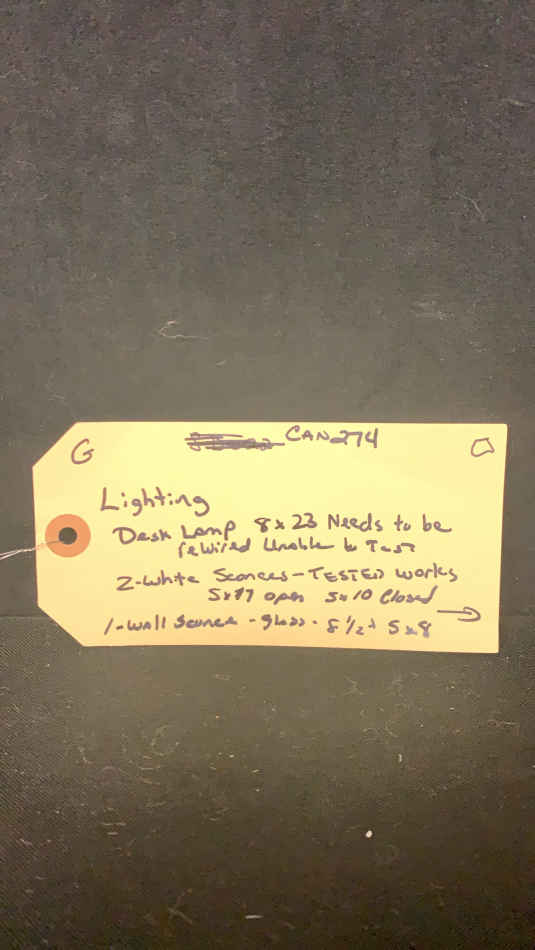 G CAN274
Lighting
Desk Lamp 8x23 Needs to be
rewired Unable to Test
2-white Sconces-TESTED works
5x17 open 5x10 Closed
1-wall Sconce - glass - 8 1/2 x 5x8